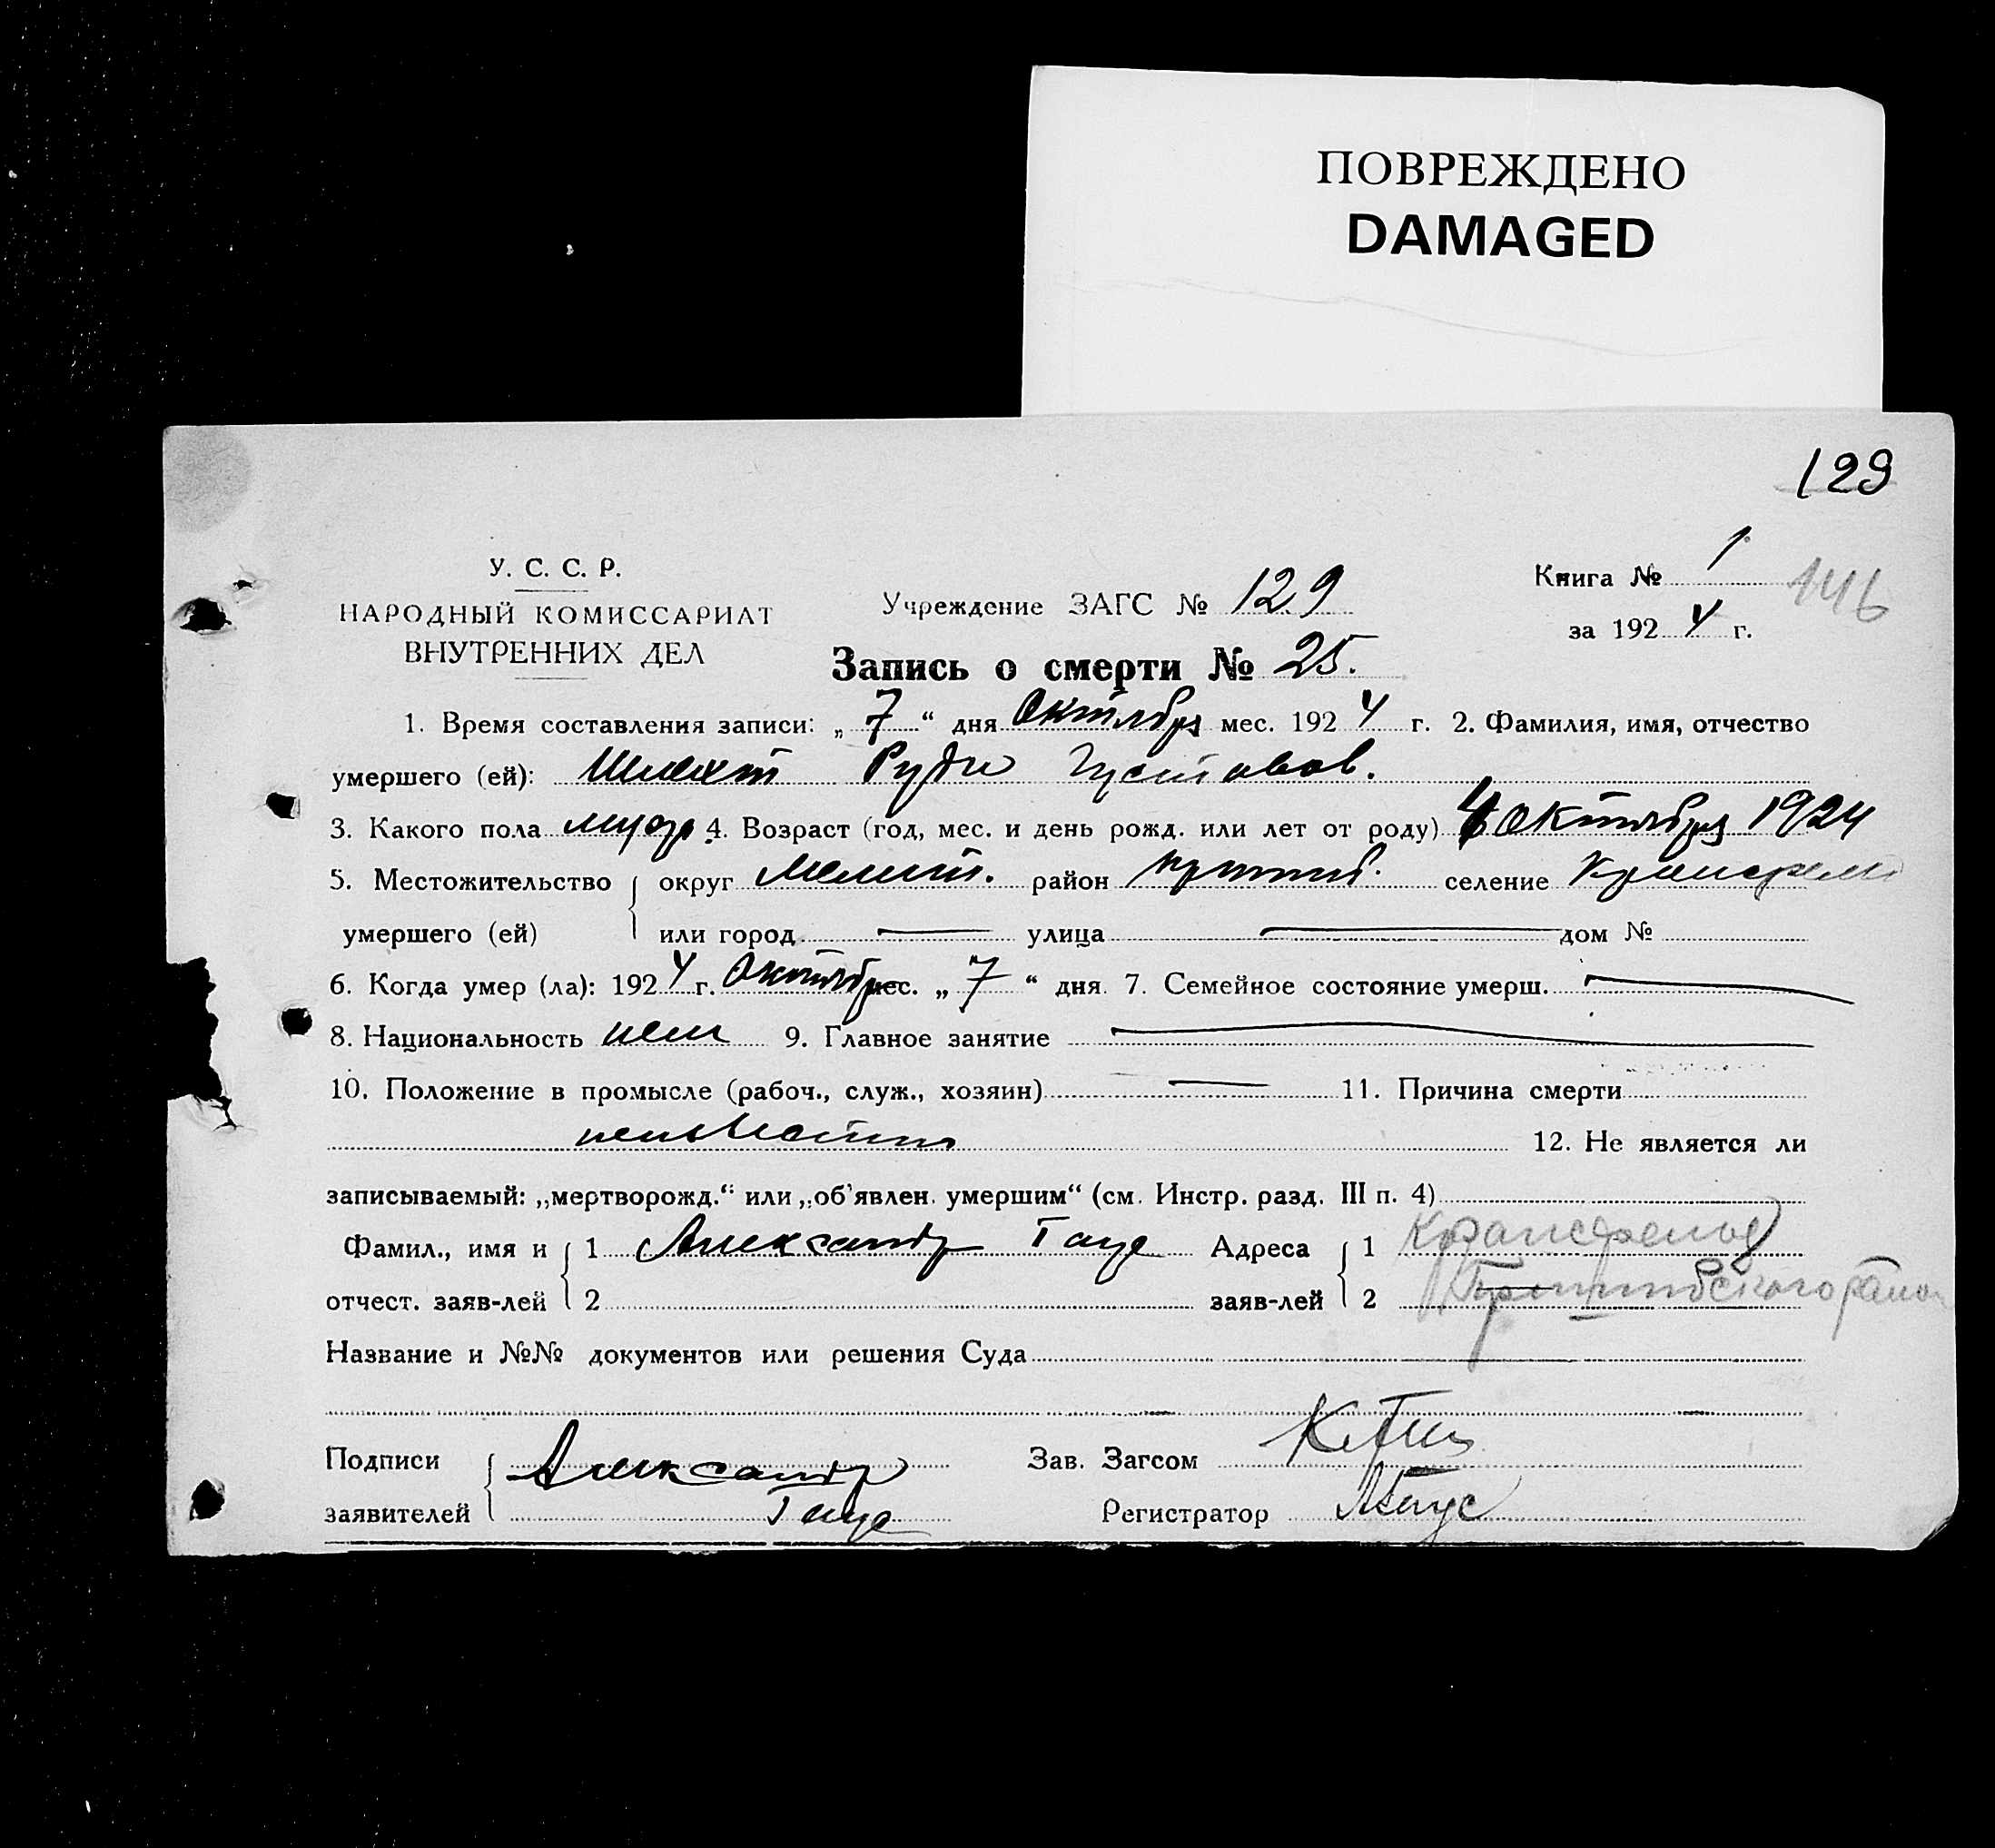 ПОВРЕЖДЕНО
DAMAGED
129
У. С. С. Р.
НАРОДНЫЙ КОМИССАРИАТ
ВНУТРЕННИХ ДЕЛ
Учреждение ЗАГС № 129
Книга № 1
146
за 1924 г.
Запись о смерти № 25.
1. Время составления записи: „7“ дня Октября мес. 1924 г. 2. Фамилия, имя, отчество
умершего (ей): Шлехт Руди Густавов.
3. Какого пола 4. Возраст (год, мес. и день рожд. или лет от роду) 4 Октября 1924
5. Местожительство округ Мелит. район селение
умершего (ей) или город — улица — дом №
6. Когда умер (ла): 1924 г. Октября мес. „7“ дня. 7. Семейное состояние умерш. —
8. Национальность нем 9. Главное занятие —
10. Положение в промысле (рабоч., служ., хозяин) — 11. Причина смерти
неизвестно 12. Не является ли
записываемый: „мертворожд.“ или „об'явлен. умершим“ (см. Инстр. разд. III п. 4)
Фамил., имя и 1 Александр Гауе Адреса 1
отчест. заяв-лей 2 заяв-лей 2
Название и №№ документов или решения Суда
Подписи Александр Зав. Загсом
заявителей Гауе Регистратор